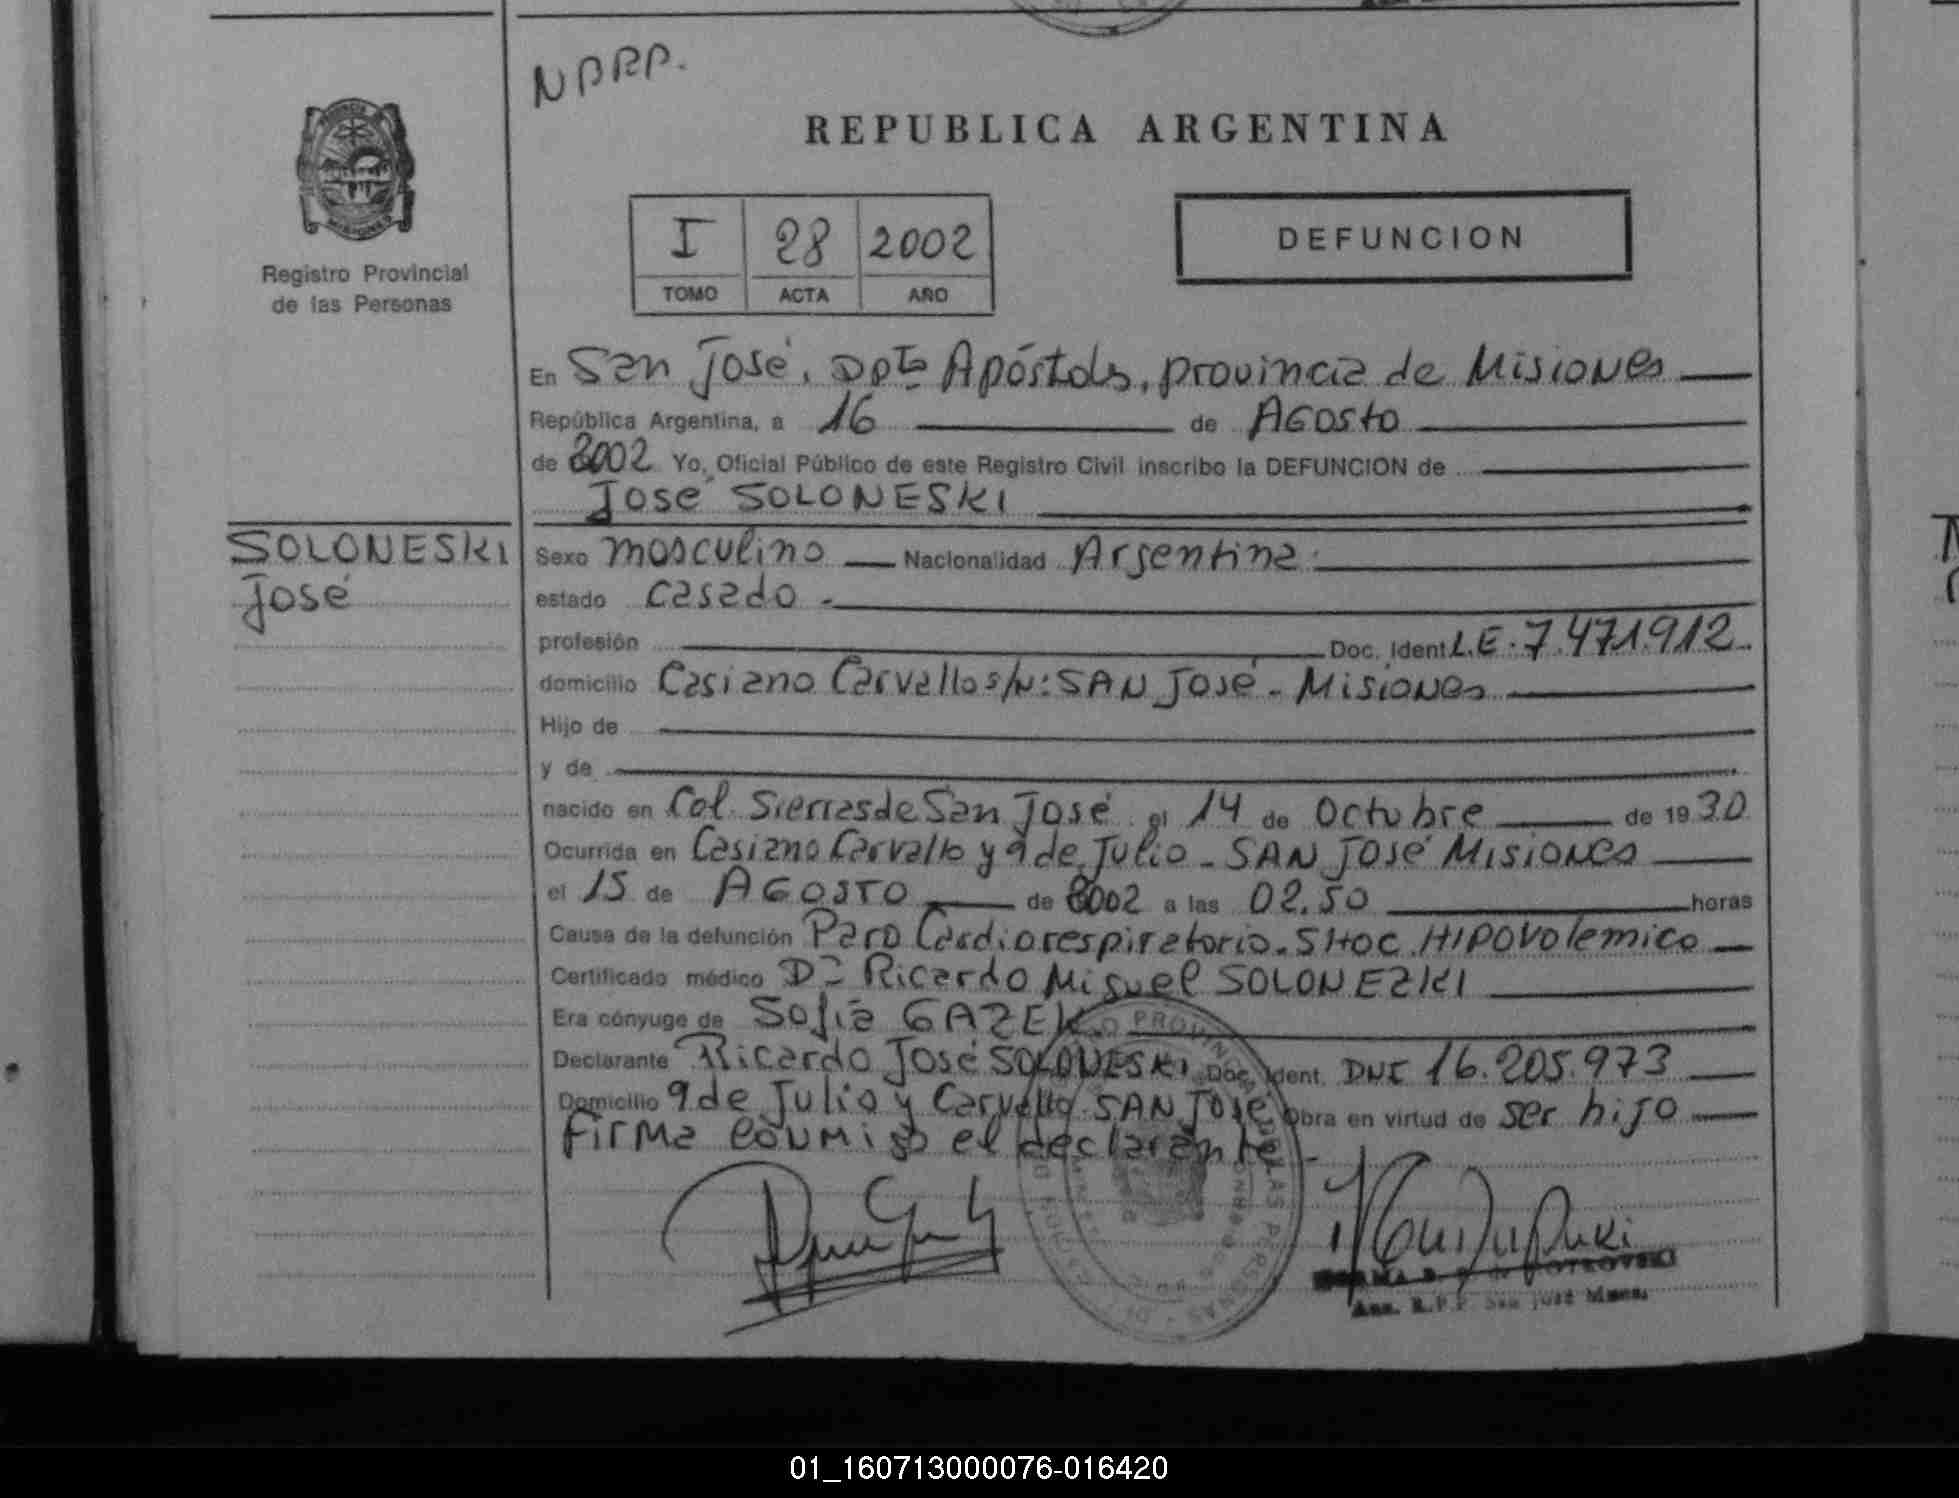 NPRP.
REPUBLICA ARGENTINA
I 28 2002
TOMO ACTA AÑO
DEFUNCION
Registro Provincial
de las Personas
En San José, Dpto Apóstoles, provincia de Misiones
República Argentina, a 16 de Agosto
de 2002 Yo, Oficial Público de este Registro Civil inscribo la DEFUNCION de
José SOLONESKI
SOLONESKI
José
Sexo masculino Nacionalidad Argentina.
estado casado.
profesión Doc. Ident. L.E. 7.471.912.
domicilio Casiano Carvallo s/N: SAN José - Misiones
Hijo de
y de
nacido en Col. Sierras de San José el 14 de Octubre de 1930
Ocurrida en Casiano Carvallo y 9 de Julio - SAN José Misiones
el 15 de AGOSTO de 2002 a las 02.50 horas
Causa de la defunción Paro Cardiorespiratorio. SHOC HIPOVolemico
Certificado médico Dr Ricardo Miguel SOLONEZKI
Era cónyuge de Sofia GAZEK.
Declarante Ricardo José SOLONESKI Doc. Ident. DNI 16.205.973
Domicilio 9 de Julio y Carvallo SAN José Obra en virtud de ser hijo
Firma conmigo el declarante.
PERSONAS
01_160713000076-016420